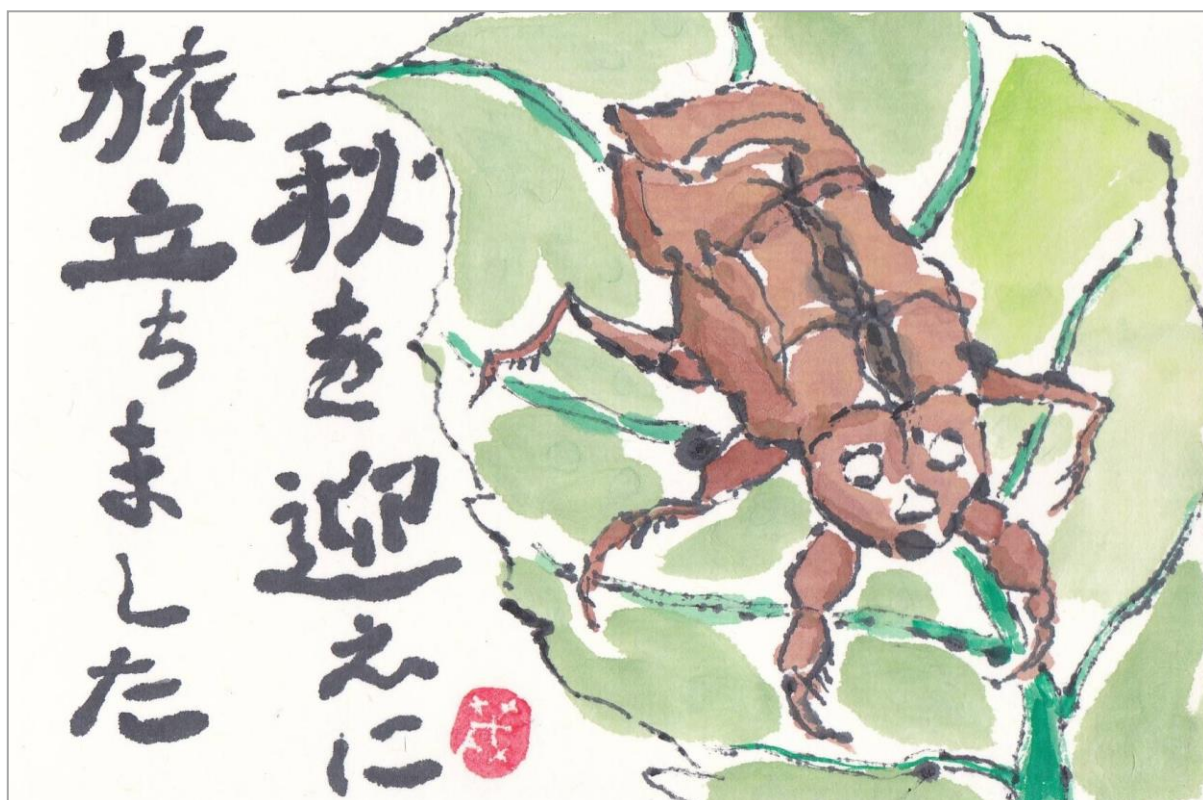 秋を迎えに
旅立ちました